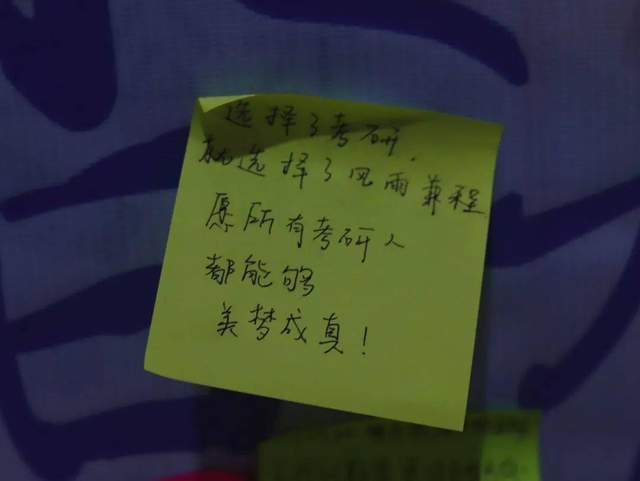 选择了考研,
就选择了风雨兼程
愿所有考研人
都能够
美梦成真!